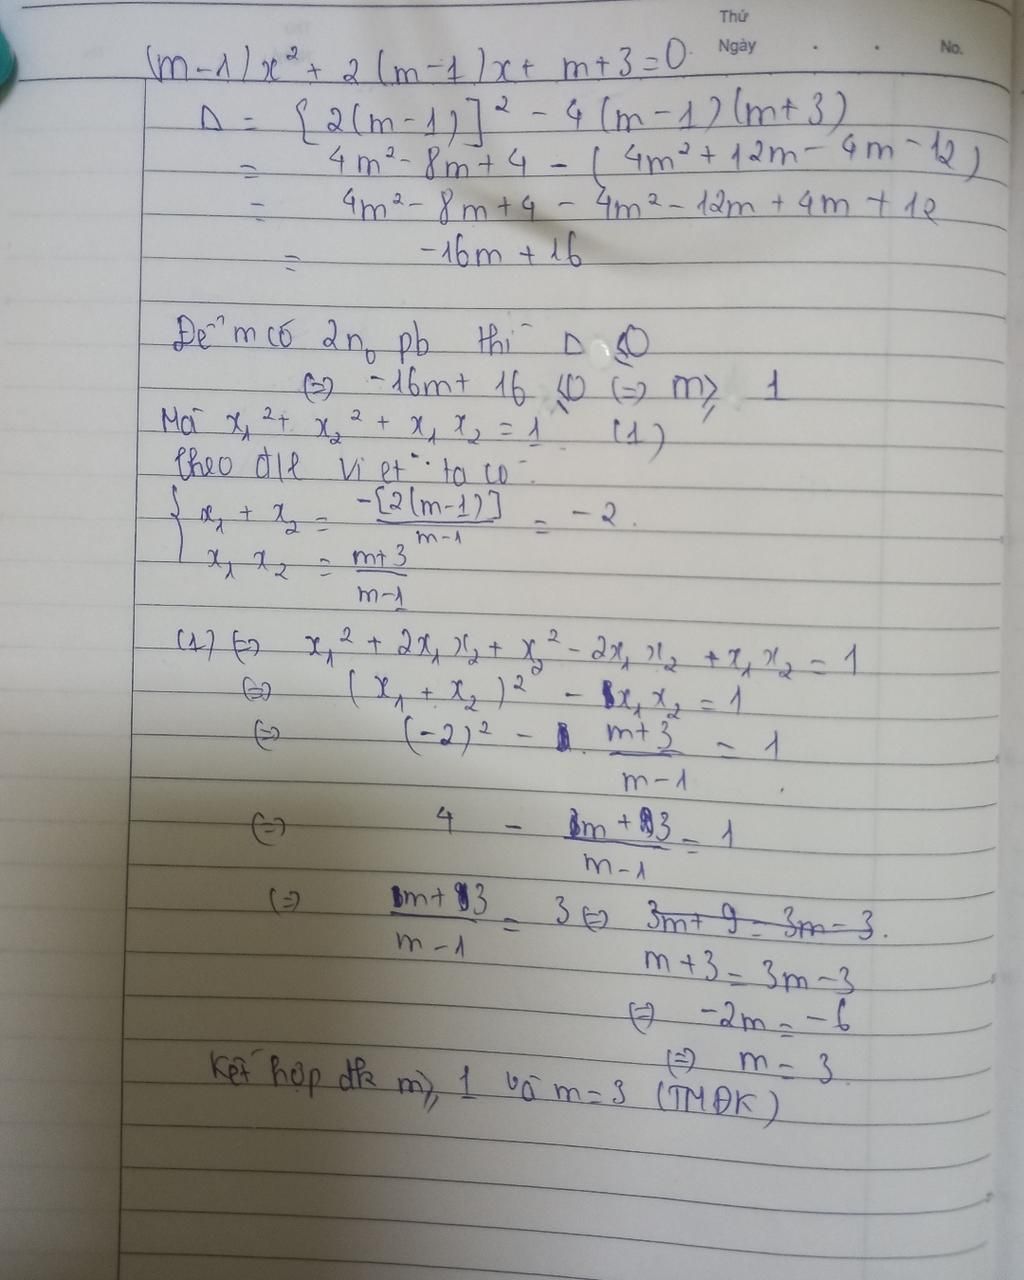 Thứ
Ngày . . No.
(m-1)x² + 2(m-1)x + m+3=0
Δ = [2(m-1)]² - 4(m-1)(m+3)
= 4m² - 8m + 4 - (4m² + 12m - 4m - 12)
= 4m² - 8m + 4 - 4m² - 12m + 4m + 12
= -16m + 16
Để m có 2n₀ pb thì Δ ≤0
(=) -16m + 16 ≤0 (=) m ≥ 1
Mà x₁² + x₂² + x₁ x₂ = 1 (1)
theo đlí Vi et ta có:
{ x₁ + x₂ = -[2(m-1)] / m-1 = -2.
x₁ x₂ = m+3 / m-1
(1) (=) x₁² + 2x₁x₂ + x₂² - 2x₁x₂ + x₁x₂ = 1
(=) (x₁ + x₂)² - x₁x₂ = 1
(=) (-2)² - m+3 / m-1 = 1
(=) 4 - m+3 / m-1 = 1
(=) m+3 / m-1 = 3 (=) 3m + 9 = 3m - 3.
m+3 = 3m-3
(=) -2m = -6
(=) m = 3.
Kết hợp đk m ≥ 1 và m = 3 (TMĐK)